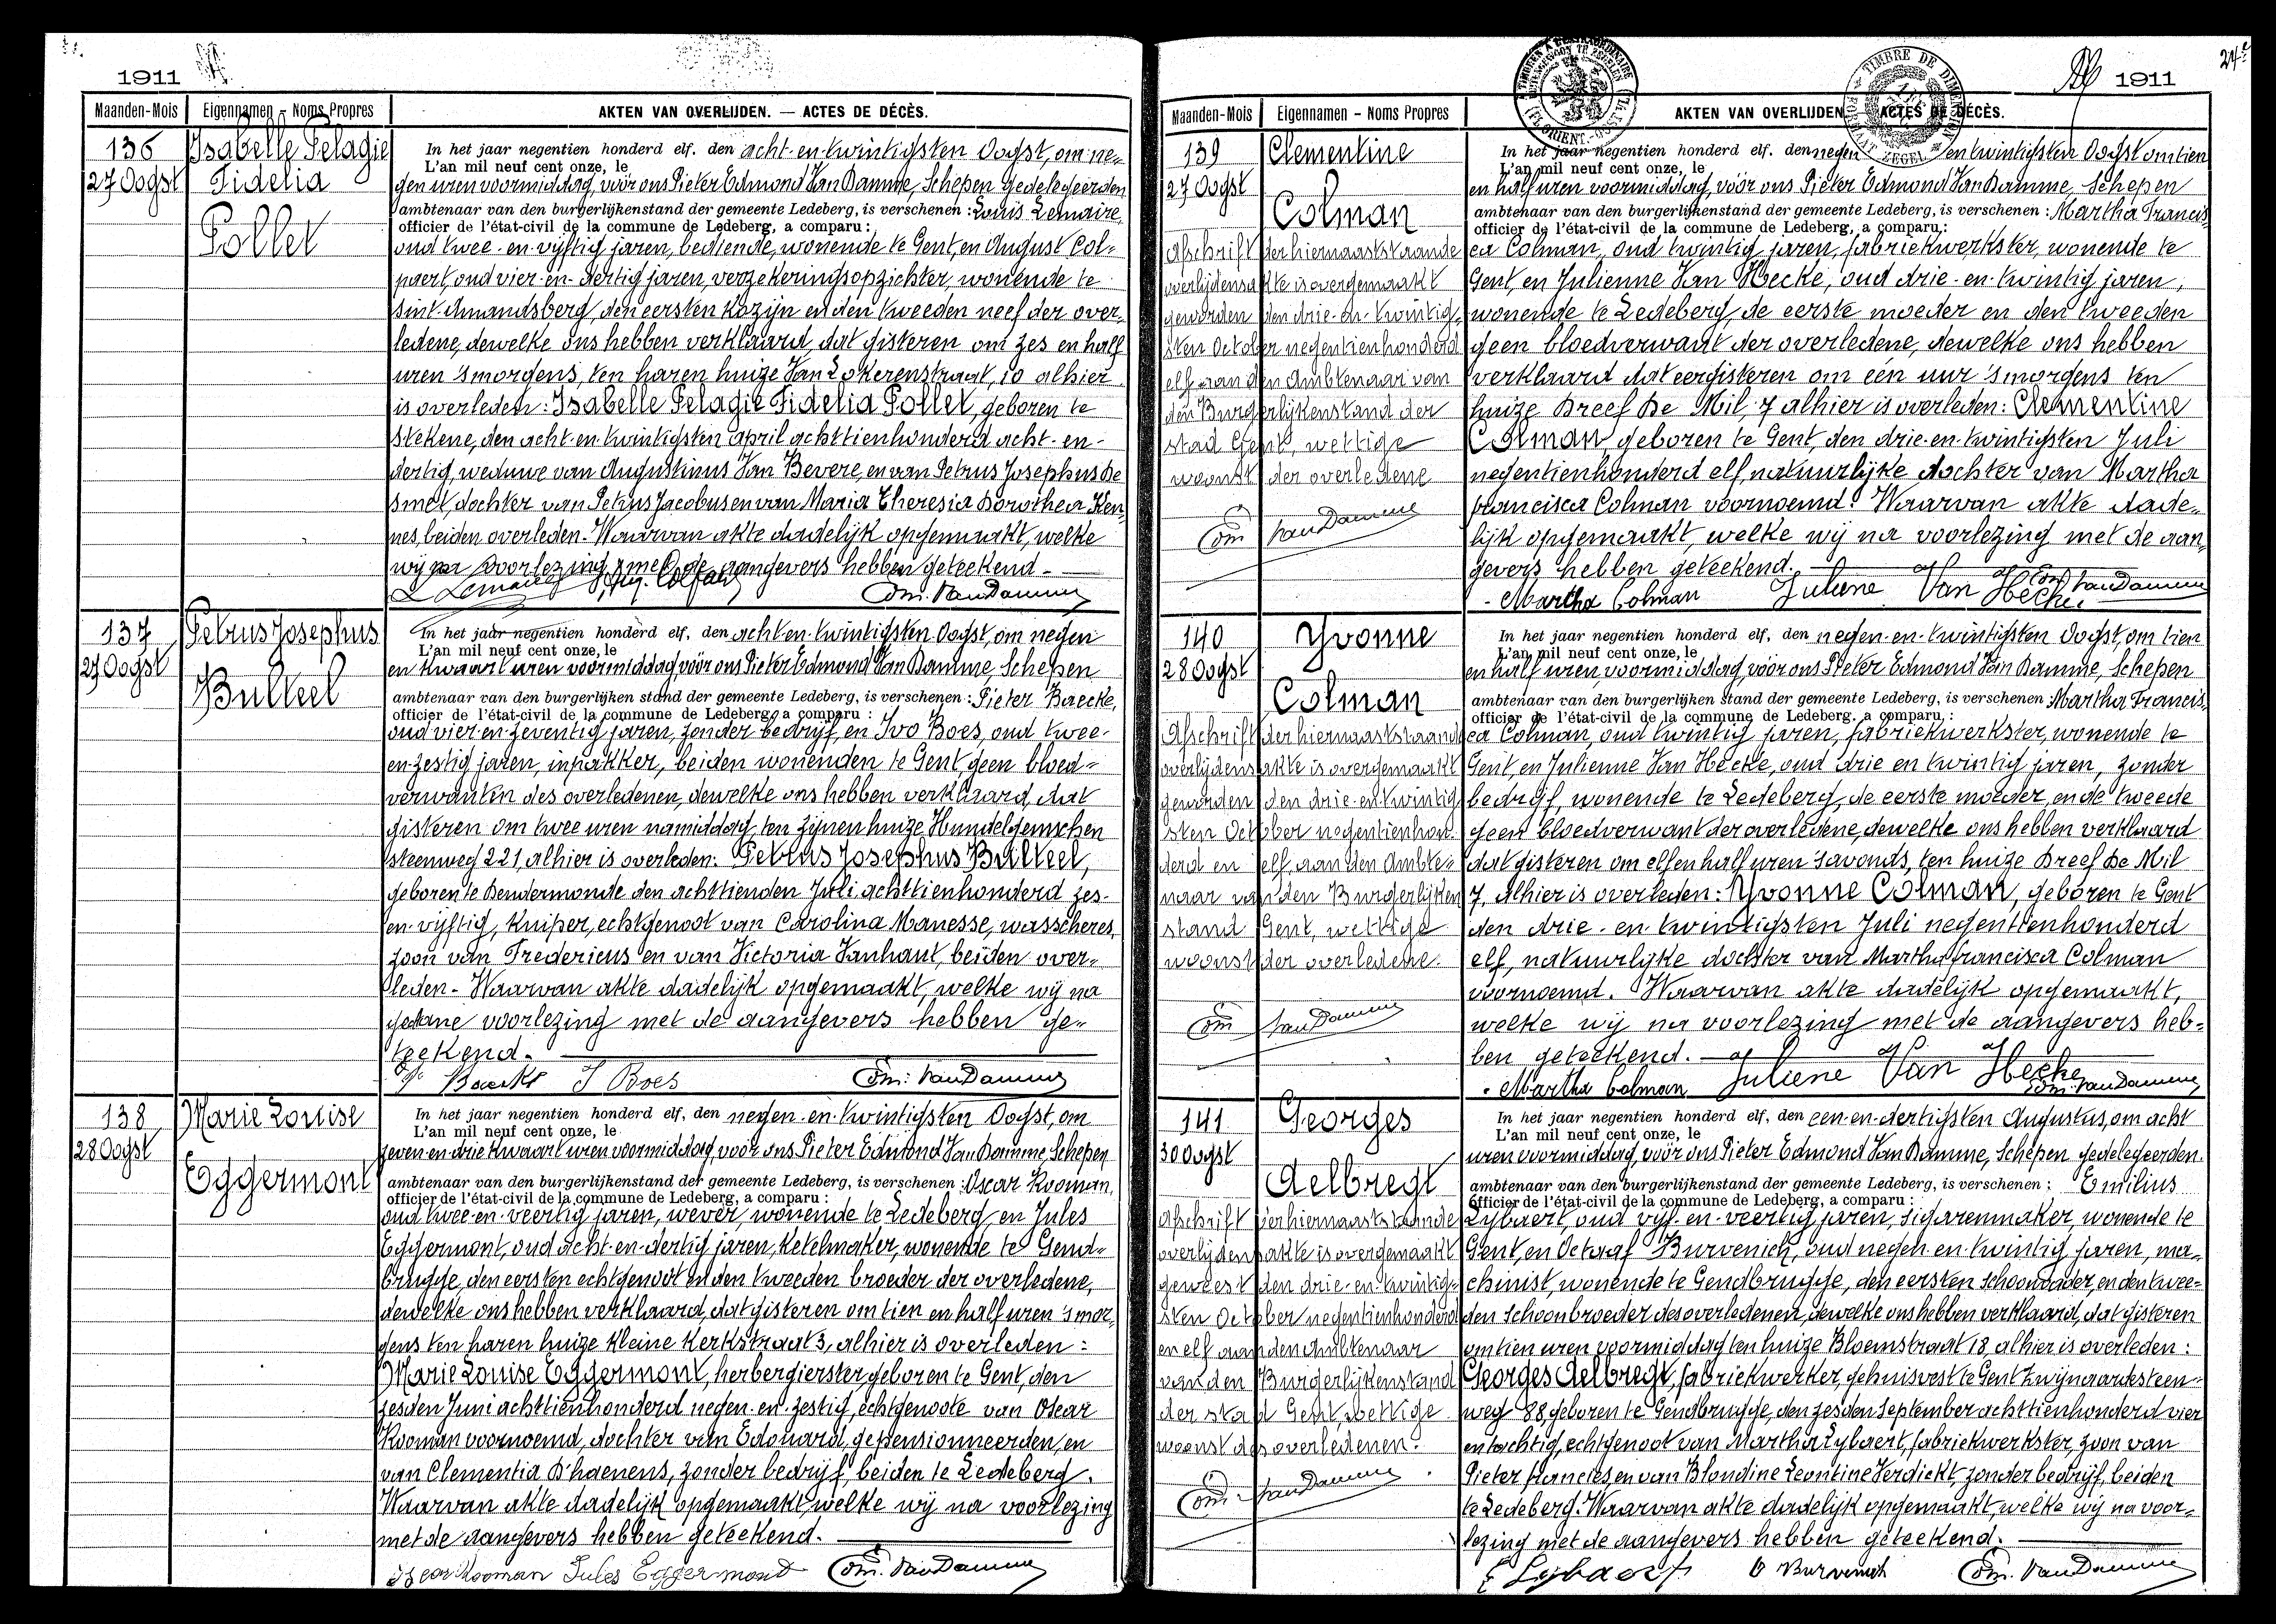 1911
Maanden-Mois
Eigennamen – Noms Propres
AKTEN VAN OVERLIJDEN. — ACTES DE DÉCÈS.
136
27 Oogst
Isabelle Pelagie
Fidelia
Pollet
In het jaar negentien honderd elf. den acht-en-twintigsten Oogst, om ne-
L'an mil neuf cent onze, le
gen uren voormiddag, vóór ons Pieter Edmond Van Damme, Schepen gedelegeerden
ambtenaar van den burgerlijkenstand der gemeente Ledeberg, is verschenen : Louis Lemaire,
officier de l'état-civil de la commune de Ledeberg, a comparu :
oud twee-en-vijftig jaren, bediende, wonende te Gent, en August Col-
paert, oud vier-en-dertig jaren, verzekeringsopzichter, wonende te
Sint-Amandsberg, den eersten kozijn en den tweeden neef der over-
ledene, dewelke ons hebben verklaard, dat gisteren om zes en half
uren 'smorgens, ten haren huize Van Lokerenstraat, 10 alhier
is overleden: Isabelle Pelagie Fidelia Pollet, geboren te
Stekene, den acht-en-twintigsten april achttienhonderd acht-en-
dertig, weduwe van Augustinus Van Bevere, en van Petrus Josephus De
Smet, dochter van Petrus Jacobus en van Maria Theresia Dorothea Ken-
nes, beiden overleden. Waarvan akte dadelijk opgemaakt, welke
wij na voorlezing met de aangevers hebben geteekend.
L Lemaire Aug. Colpaert Edm. Van Damme
137
27 Oogst
Petrus Josephus
Bulteel
In het jaar negentien honderd elf, den acht-en-twintigsten Oogst, om negen
L'an mil neuf cent onze, le
en kwaart uren voormiddag, vóór ons Pieter Edmond Van Damme, Schepen
ambtenaar van den burgerlijken stand der gemeente Ledeberg, is verschenen : Pieter Baecke,
officier de l'état-civil de la commune de Ledeberg, a comparu :
oud vier-en-zeventig jaren, zonder bedrijf, en Ivo Boes, oud twee-
en-zestig jaren, inpakker, beiden wonenden te Gent, geen bloed-
verwanten des overledenen, dewelke ons hebben verklaard, dat
gisteren om twee uren namiddag, ten zijnen huize Hundelgemschen
steenweg 221, alhier is overleden: Petrus Josephus Bulteel,
geboren te Dendermonde den achttienden Juli achttienhonderd zes-
en-vijftig, kuiper, echtgenoot van Carolina Manesse, wasscheres,
zoon van Fredericus en van Victoria Vanhaut, beiden over-
leden. Waarvan akte dadelijk opgemaakt, welke wij na
gedane voorlezing met de aangevers hebben ge-
teekend.
P. Baecke I Boes Edm. Van Damme
138
28 Oogst
Marie Louise
Eggermont
In het jaar negentien honderd elf, den negen-en-twintigsten Oogst, om
L'an mil neuf cent onze, le
zeven en drie kwaart uren voormiddag, voor ons Pieter Edmond Van Damme, Schepen
ambtenaar van den burgerlijkenstand der gemeente Ledeberg, is verschenen : Oscar Kooman,
officier de l'état-civil de la commune de Ledeberg, a comparu :
oud twee-en-veertig jaren, wever, wonende te Ledeberg, en Jules
Eggermont, oud acht-en-dertig jaren, ketelmaker, wonende te Gend-
brugge, den eersten echtgenoot en den tweeden broeder der overledene,
dewelke ons hebben verklaard, dat gisteren om tien en half uren 's mor-
gens ten haren huize kleine Kerkstraat 3, alhier is overleden :
Marie Louise Eggermont, herbergierster, geboren te Gent, den
zesden Juni achttienhonderd negen-en-zestig, echtgenoote van Oscar
Kooman voornoemd, dochter van Edouard, gepensionneerden, en
van Clementia D'haenens, zonder bedrijf, beiden te Ledeberg.
Waarvan akte dadelijk opgemaakt, welke wij na voorlezing
met de aangevers hebben geteekend.
Oscar Kooman Jules Eggermont Edm. Van Damme
1911
Maanden-Mois
Eigennamen – Noms Propres
AKTEN VAN OVERLIJDEN. — ACTES DE DÉCÈS.
TIMBRE DE DIMENSION
FORMAAT ZEGEL
139
27 Oogst
Clementine
Colman
Afschrift der hiernaaststaande
overlijdensakte is overgemaakt
geworden den drie-en-twintig-
sten October negentienhonderd
elf aan den Ambtenaar van
den Burgerlijkenstand der
stad Gent, wettige
woonst der overledene
Edm Van Damme
In het jaar negentien honderd elf. den negen en twintigsten Oogst om tien
L'an mil neuf cent onze, le
en half uren voormiddag, vóór ons Pieter Edmond Van Damme, Schepen
ambtenaar van den burgerlijkenstand der gemeente Ledeberg, is verschenen : Martha Francis-
officier de l'état-civil de la commune de Ledeberg, a comparu :
ca Colman, oud twintig jaren, fabriekwerkster, wonende te
Gent, en Julienne Van Hecke, oud drie-en-twintig jaren,
wonende te Ledeberg, de eerste moeder en den tweeden
geen bloedverwant der overledene, dewelke ons hebben
verklaard dat eergisteren om één uur 'smorgens ten
huize Dreef De Mil, 7 alhier is overleden: Clementine
Colman geboren te Gent, den drie-en-twintigsten Juli
negentienhonderd elf, natuurlijke dochter van Martha
Francisca Colman voornoemd. Waarvan akte dade-
lijk opgemaakt, welke wij na voorlezing met de aan-
gevers hebben geteekend.
Martha Colman Juliene Van Hecke Edm Van Damme
140
28 Oogst
Yvonne
Colman
Afschrift der hiernaaststaande
overlijdens akte is overgemaakt
geworden den drie-en-twintig
sten October negentienhon-
derd en elf, aan den Ambte-
naar van den Burgerlijken
stand Gent, wettige
woonst der overledene.
Edm Van Damme
In het jaar negentien honderd elf, den negen-en-twintigsten Oogst, om tien
L'an mil neuf cent onze, le
en half uren, voormiddag, vóór ons Pieter Edmond Van Damme, Schepen
ambtenaar van den burgerlijken stand der gemeente Ledeberg, is verschenen : Martha Francis-
officier de l'état-civil de la commune de Ledeberg. a comparu :
ca Colman, oud twintig jaren, fabriekwerkster, wonende te
Gent, en Julienne Van Hecke, oud drie en twintig jaren, zonder
bedrijf, wonende te Ledeberg, de eerste moeder, en de tweede
geen bloedverwant der overledene, dewelke ons hebben verklaard
dat gisteren om elf en half uren 'savonds, ten huize Dreef De Mil
7, alhier is overleden: Yvonne Colman, geboren te Gent
den drie-en-twintigsten Juli negentienhonderd
elf, natuurlijke dochter van Martha francisca Colman
voornoemd. Waarvan akte dadelijk opgemaakt,
welke wij na voorlezing met de aangevers heb-
ben geteekend.
Martha Colman Juliene Van Hecke Edm. Van Damme
141
30 Oogst
Georges
Aelbregt
Afschrift der hiernaaststaande
overlijdensakte is overgemaakt
geweest den drie-en-twintig-
sten October negentienhonderd
en elf aan den Ambtenaar
van den Burgerlijkenstand
der stad Gent, wettige
woonst des overledenen.
Edm. Van Damme
In het jaar negentien honderd elf, den een-en-dertigsten Augustus, om acht
L'an mil neuf cent onze, le
uren voormiddag, vóór ons Pieter Edmond Van Damme, Schepen gedelegeerden
ambtenaar van den burgerlijkenstand der gemeente Ledeberg, is verschenen ; Emilius
officier de l'état-civil de la commune de Ledeberg, a comparu :
Lybaert, oud vijf-en-veertig jaren, sigarenmaker, wonende te
Gent, en Octaaf Burvenich, oud negen-en-twintig jaren, ma-
chinist, wonende te Gendbrugge, den eersten schoonvader, en den twee-
den schoonbroeder des overledenen, dewelke ons hebben verklaard, dat gisteren
om tien uren voormiddag ten huize Bloemstraat 18, alhier is overleden :
Georges Aelbregt, fabriekwerker, gehuisvest te Gent Zwijnaardesteen-
weg 88, geboren te Gendbrugge, den zesden September achttienhonderd vier
en tachtig, echtgenoot van Martha Lybaert, fabriekwerkster, zoon van
Pieter francies en van Blondine Leontine Verdickt, zonder bedrijf, beiden
te Ledeberg. Waarvan akte dadelijk opgemaakt, welke wij na voor-
lezing met de aangevers hebben geteekend.
E Lybaert O Burvenich Edm. Van Damme